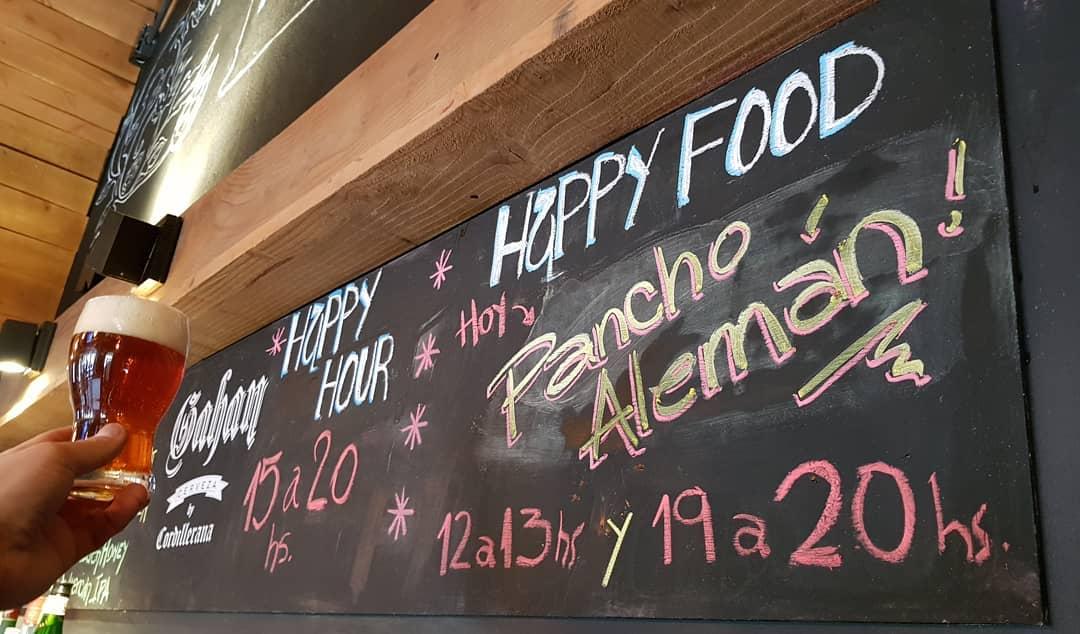 HAPPY
HOUR
Gahan
CERVEZA
by
Cordillerana
15 a 20
hs.
HAPPY FOOD
HOY
Pancho
Alemán!
12 a 13 hs y 19 a 20 hs.
HONEY
IPA